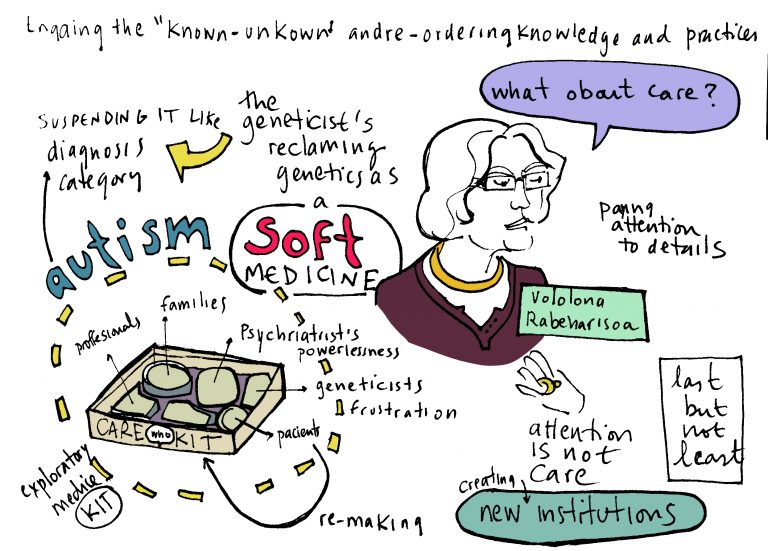 Engaing the "known-unkown" and re-ordering knowledge and practices
what about care?
SUSPENDING IT LIKE
diagnosis
category
the
geneticist's
reclaming
genetics as
a
soft
MEDICINE
autism
paying
attention
to details
Vololona
Rabeharisoa
families
proffesionals
Psychriatrist's
powerlessness
geneticists
frustration
pacients
CARE who KIT
exploratory
medice
KIT
re-making
attention
IS not
care
creating
new institutions
last
but
not
least